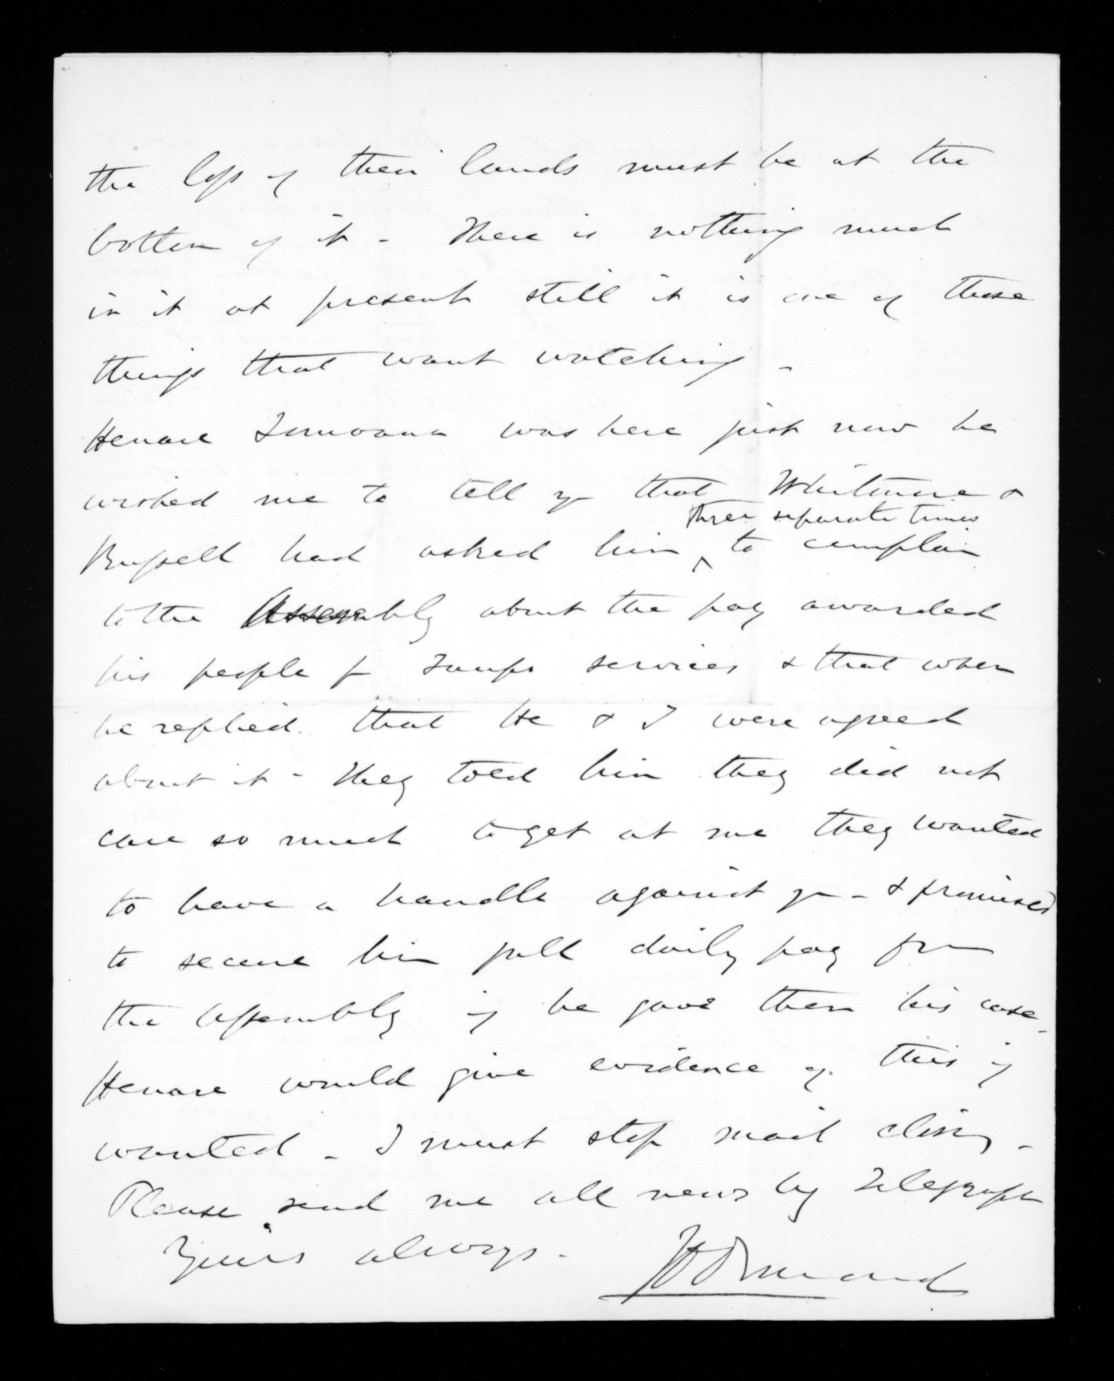 the loss of their lands must be at the
bottom of it - There is nothing much
in it at present still it is one of those
things that want watching -
Henare Tomoana was here just now he
wished me to tell you that Whitmore &
three separate times
Russell had asked him ^ to complain
to the Assembly about the pay awarded
his people for services & that when
he replied that He & I were agreed
about it - They told him they did not
care so much to get at me they wanted
to have a handle against you - & promised
to secure him full daily pay from
the Assembly if he gave them his case.
Henare would give evidence of this if
wanted - I must stop mail closing -
Please send me all news by Telegraph
Yours always -
JD Ormond